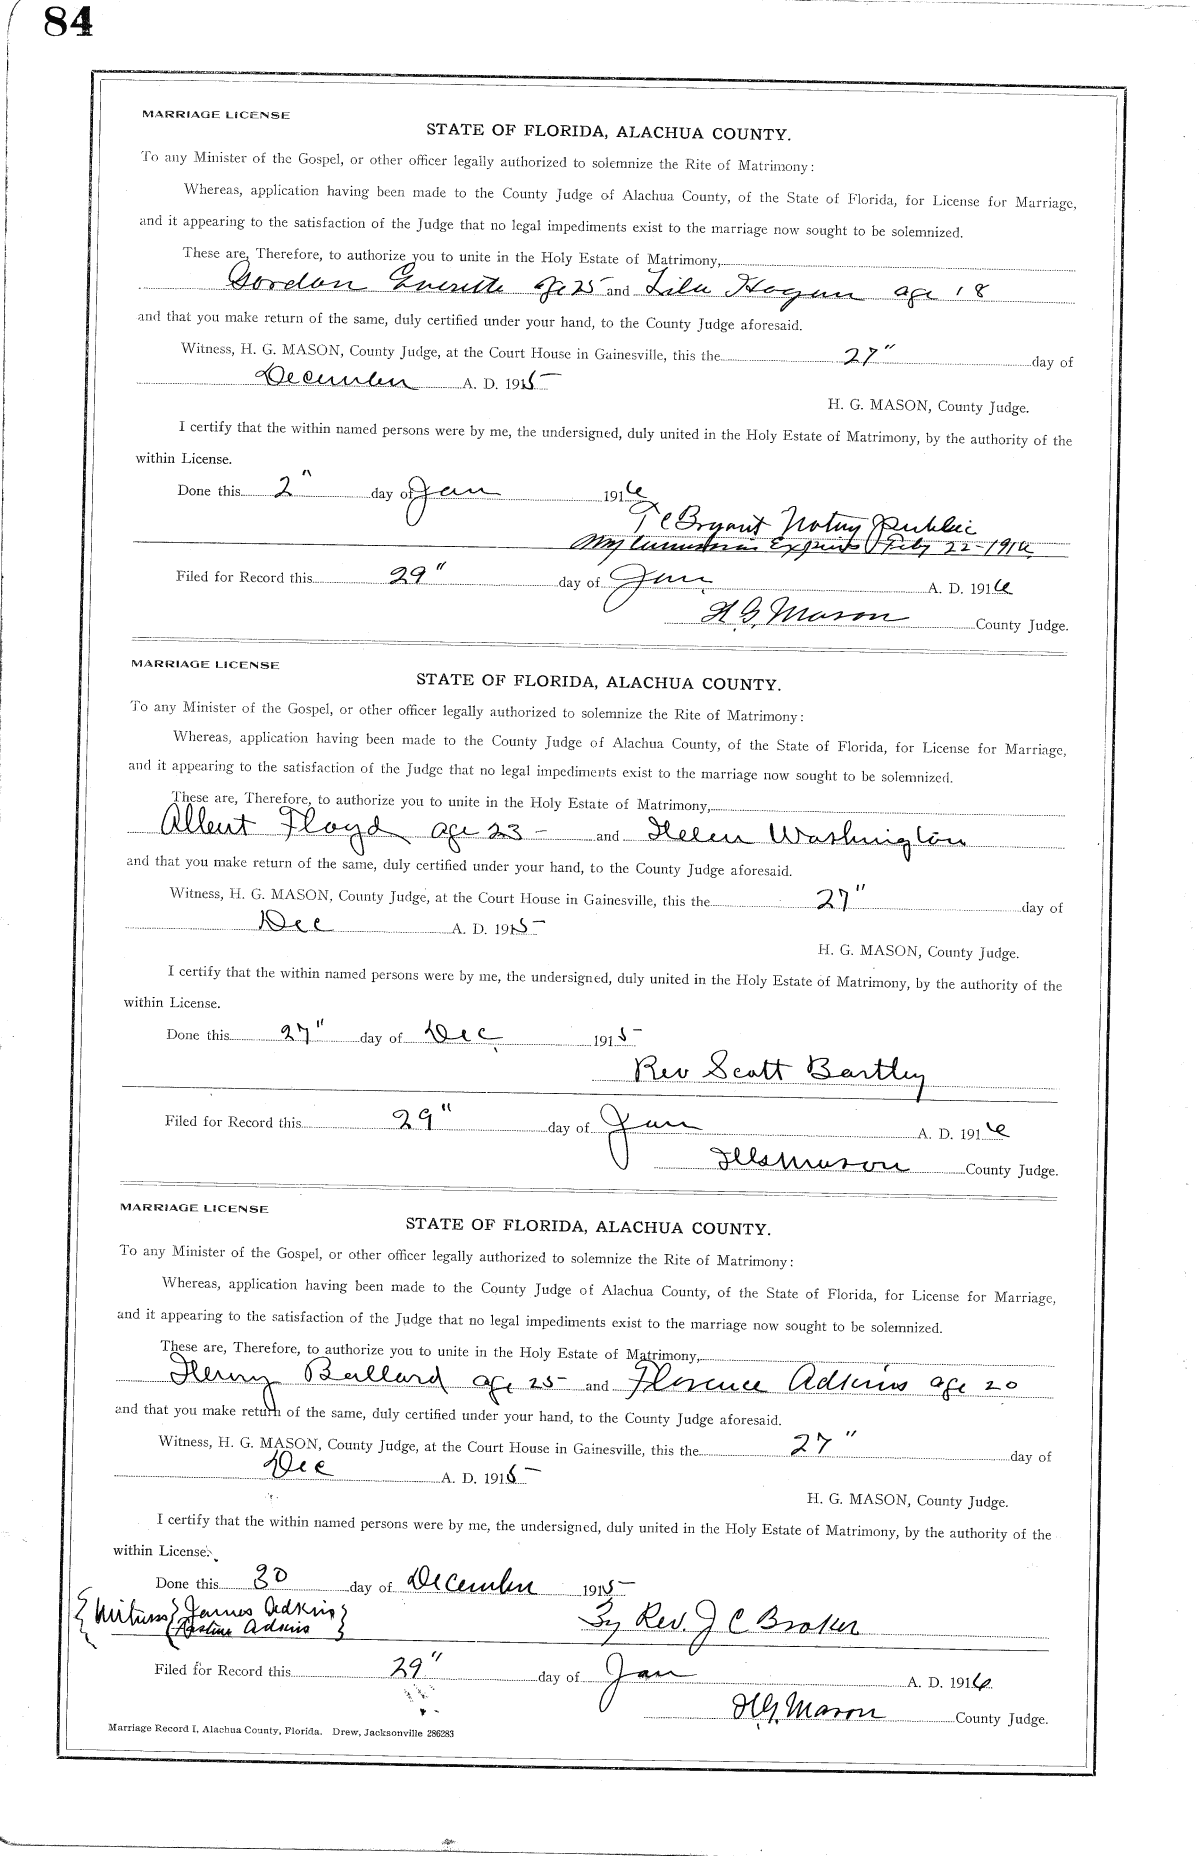 84
MARRIAGE LICENSE
STATE OF FLORIDA, ALACHUA COUNTY.
To any Minister of the Gospel, or other officer legally authorized to solemnize the Rite of Matrimony:
Whereas, application having been made to the County Judge of Alachua County, of the State of Florida, for License for Marriage,
and it appearing to the satisfaction of the Judge that no legal impediments exist to the marriage now sought to be solemnized.
These are, Therefore, to authorize you to unite in the Holy Estate of Matrimony,
Gordon Everette age 25 and Lila Hogan age 18
and that you make return of the same, duly certified under your hand, to the County Judge aforesaid.
Witness, H. G. MASON, County Judge, at the Court House in Gainesville, this the 27" day of
December A. D. 1915
H. G. MASON, County Judge.
I certify that the within named persons were by me, the undersigned, duly united in the Holy Estate of Matrimony, by the authority of the
within License.
Done this 2" day of Jan 1916
T C Bryant Notary Public
My Commission Expires Feby 22-1916
Filed for Record this 29" day of Jan A. D. 1916
H. G. Mason County Judge.
MARRIAGE LICENSE
STATE OF FLORIDA, ALACHUA COUNTY.
To any Minister of the Gospel, or other officer legally authorized to solemnize the Rite of Matrimony:
Whereas, application having been made to the County Judge of Alachua County, of the State of Florida, for License for Marriage,
and it appearing to the satisfaction of the Judge that no legal impediments exist to the marriage now sought to be solemnized.
These are, Therefore, to authorize you to unite in the Holy Estate of Matrimony,
Albert Floyd age 23 - and Helen Washington
and that you make return of the same, duly certified under your hand, to the County Judge aforesaid.
Witness, H. G. MASON, County Judge, at the Court House in Gainesville, this the 27" day of
Dec A. D. 1915
H. G. MASON, County Judge.
I certify that the within named persons were by me, the undersigned, duly united in the Holy Estate of Matrimony, by the authority of the
within License.
Done this 27" day of Dec 1915
Rev Scott Bartley
Filed for Record this 29" day of Jan A. D. 1916
H G Mason County Judge.
MARRIAGE LICENSE
STATE OF FLORIDA, ALACHUA COUNTY.
To any Minister of the Gospel, or other officer legally authorized to solemnize the Rite of Matrimony:
Whereas, application having been made to the County Judge of Alachua County, of the State of Florida, for License for Marriage,
and it appearing to the satisfaction of the Judge that no legal impediments exist to the marriage now sought to be solemnized.
These are, Therefore, to authorize you to unite in the Holy Estate of Matrimony,
Henry Ballard age 25 and Florence Adkins age 20
and that you make return of the same, duly certified under your hand, to the County Judge aforesaid.
Witness, H. G. MASON, County Judge, at the Court House in Gainesville, this the 27" day of
Dec A. D. 1915
H. G. MASON, County Judge.
I certify that the within named persons were by me, the undersigned, duly united in the Holy Estate of Matrimony, by the authority of the
within License.
Done this 30 day of December 1915
Witness James Adkins
Adkins
By Rev. J C Broker
Filed for Record this 29" day of Jan A. D. 1916
H. G. Mason County Judge.
Marriage Record I, Alachua County, Florida. Drew, Jacksonville 286283